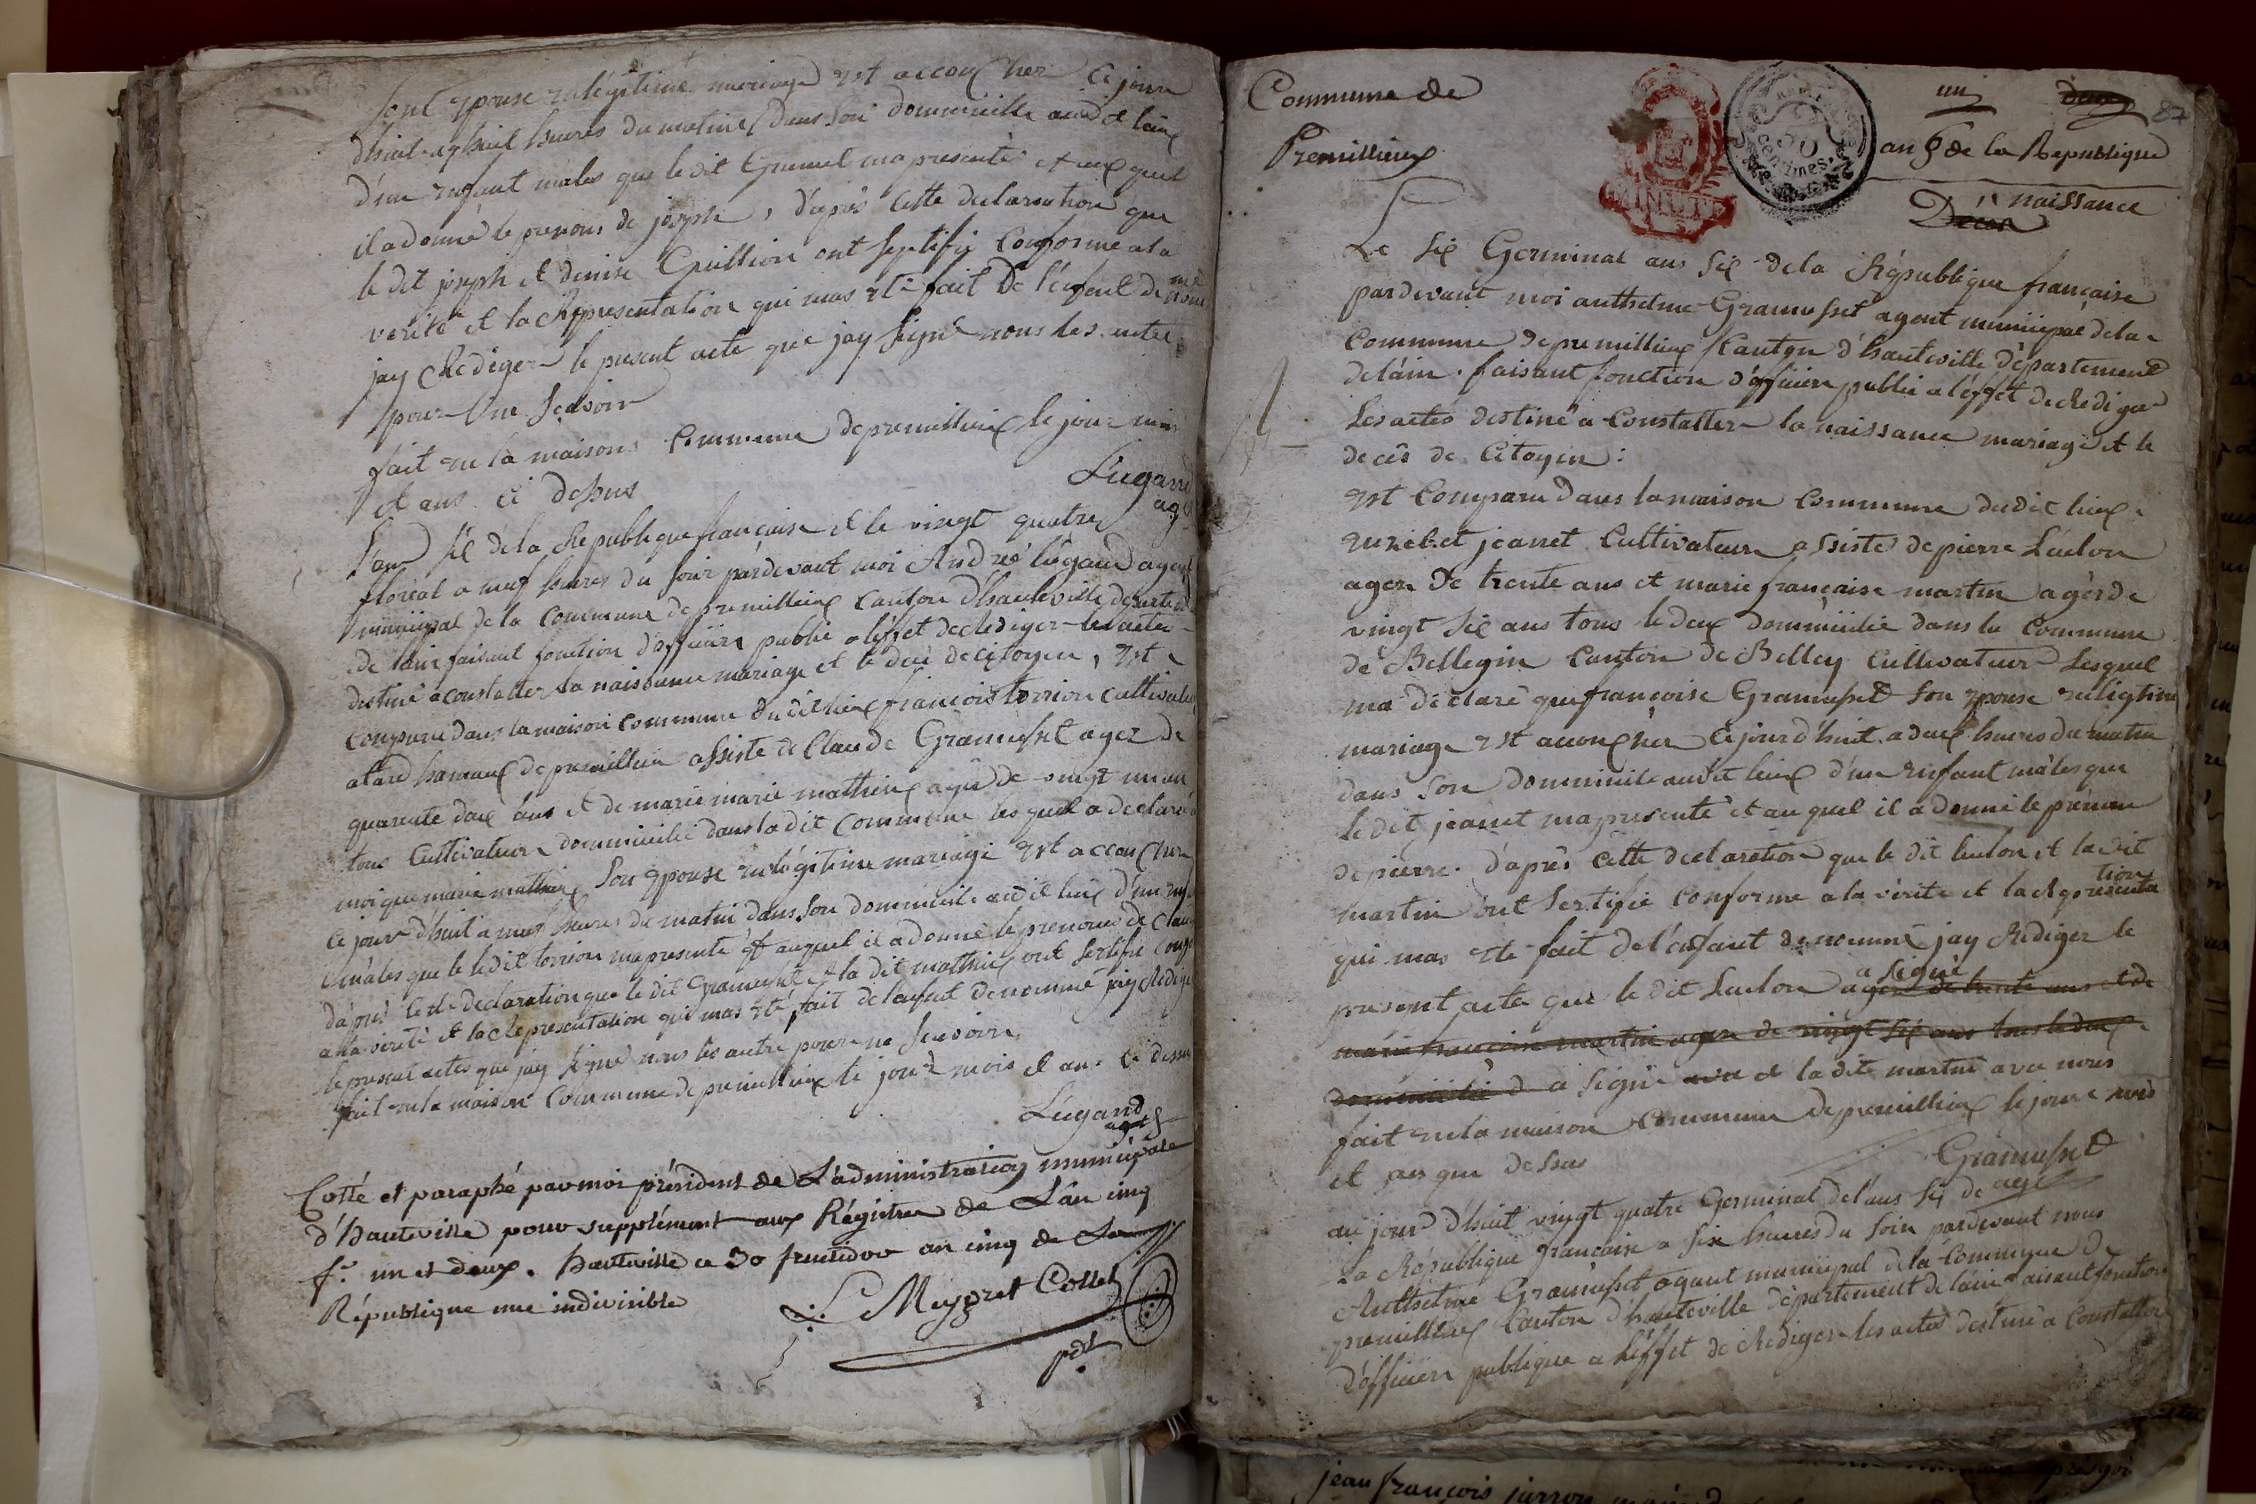 son epouse en légitime mariage est accoucher ce jour
dhuit a huit heures du matins dans son dommicille audit lieux
d'un enfant males que le dit Grumel ma presenté et auquel
il a donné le prenons de joseph, d'après cette declaration que
le dit joseph et denise Guillion ont sertifie conforme a la
verité et la Representation qui mas été fait de l'enfent denommé
jay Rediger le present acte que jay signé nous les autre
pour ne scavoir
fait en la maisons commune de premillieux le jour mois
et ans ci dessus
Lugand
agt
l'an six de la Republique française et le vingt quatre
floreal a neuf heures du soir pardevant moi André lugand agent
municipal de la commune de premillieux canton d'hauteville departement
de l'ain faisant fonction d'officier public a l'effet de rediger les actes
destiné a constatter la naissance mariage et le decè de citoyen, est
comparu dans la maison commune du dit lieux francois torrion cultivateur
a lare hameaux de premillieu assisté de Claude Gramusset agez de
quarente deux ans et de marie marie mathieu agée de vingt un an
tous cultivateur dommicilié dans la dit commune lesquel a declaré a
moi que marie mathieux son epouse en légitime mariage est accoucher
ce jour d'huit a neuf heures du matin dans son dommicile audit lieux d'un enfant
males que le ledit torrion ma presenté et auquel il a donné le prenons de Claude
d'après cette declaration que le dit Gramusset et la dit mathieu ont sertifié conforme
a la verité et la Representation qui mas été fait de l'enfent denommé jay Rediger
le present actes que jay signé nous les autre pour ne scavoir
fait en la maison commune de premillieux le jour mois et an ci dessus
Lugand
agt
Cotté et paraphé par moi président de L'administration municipale
d'hauteville pour supplément aux Régistres de L'an cinq
f.° un et deux. hauteville ce 30 fructidor an cinq de La
République une indivisible
Meygret Collet
pdt
Commune de
Premillieux
un
deux
87
50
centimes
MINUTE
an 6 de la Republique
naissance
Décès
Le six Germinal ans six de la République française
pardevant moi anthelme Gramusset agent municipal de la
Commune de premillieux Canton d'hauteville département
de l'ain. faisant fonction d'officier public a l'effet de Rediger
Les actes destiné a constatter la naissance mariage et le
decès de Citoyen:
est comparu dans la maison commune dudit lieux
jeanet Cultivateur assisté de pierre Luclon
ager de trente ans et marie françoise martin ager de
vingt six ans tous le deux dommicilié dans la commune
de Bellegin Canton de Belley Cultivateur Lesquel
ma déclaré que françoise Gramusset son epouse en legtime
mariage est accoucher ce jour d'huit a deux heures du matin
dans son dommicile audit lieux d'un enfant mâles que
le dit jeanet ma presenté et au quel il a donné le prenom
de pierre. d'après cette declaration que le dit luclon et la dit
martin ont sertifié conforme a la vérité et la Representation
qui mas été fait de l'enfant denommé jay Rediger le
present acte que le dit Luclon a signé ager de trente ans et de
marie françoise martin ager de vingt six ans tous le deux
dommicilié d a signé avec et la dite martin avec nous
fait en la maison commune de premillieux le jour mois
et ans que dessus
Gramusset
agt
au jour d'huit vingt quatre Germinal de l'ans six de
La République francaise a six heures du soir pardevant nous
Anthelme Gramusset agant municipal de la commune de
premillieux Canton d'hauteville département de lain faisant fonction
d'officier publique a l'effet de Rediger les actes destiné a constatter
jean françois